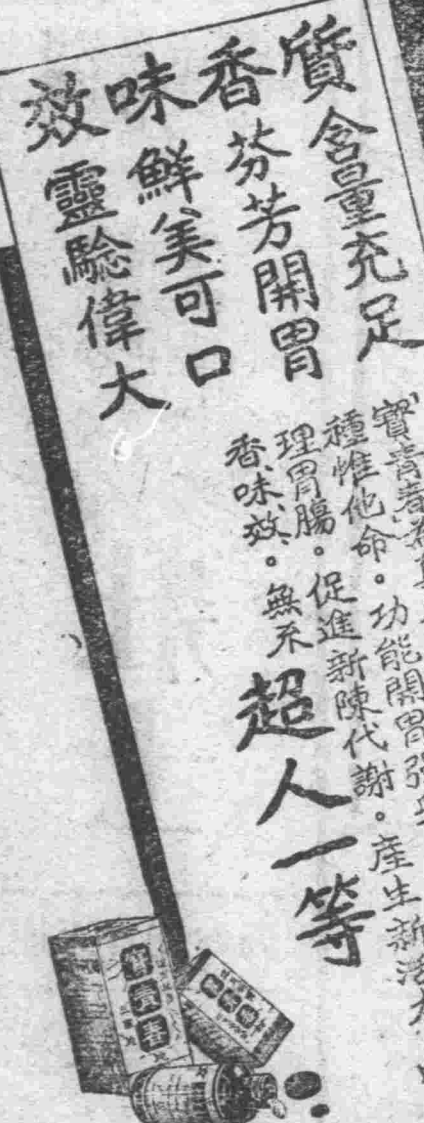 質含量充足
香芬芳開胃
味鮮美可口
效靈驗偉大
寶青春為
種惟他命。功能開胃強
理胃腸。促進新陳代謝。產生新活力
香、味、效。無不
超人一等
寶青春
寶青春